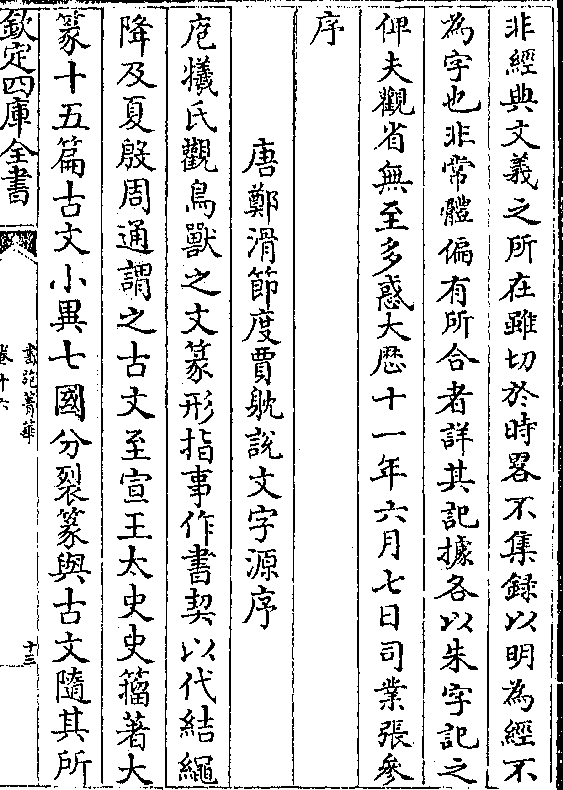 非經典文義之所在雖切於時畧不集録以明為經不
為字也非常體偏有所合者詳其記據各以朱字記之
俾夫觀省無至多惑大歴十一年六月七日司業張參
序
唐鄭滑節度賈躭說文字源序
庖犧氏觀鳥獸之文篆形指事作書契以代結繩
降及夏殷周通謂之古文至宣王太史史籀著大
篆十五篇古文小異七國分裂篆與古文隨其所
欽定四庫全書
書苑菁華
卷十六
十三